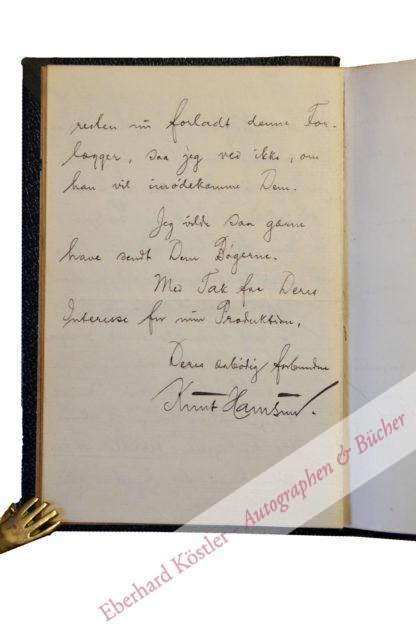 forladt denne For-
lægger, saa jeg ved ikke, om
han vil imødekomme Dem.
Jeg vilde saa gærne
have sendt Dem Bøgerne.
Med Tak for Deres
Interesse for min Produktion,
Deres ærbødig forbundne
Knut Hamsun.
Eberhard Köstler - Autographen & Bücher